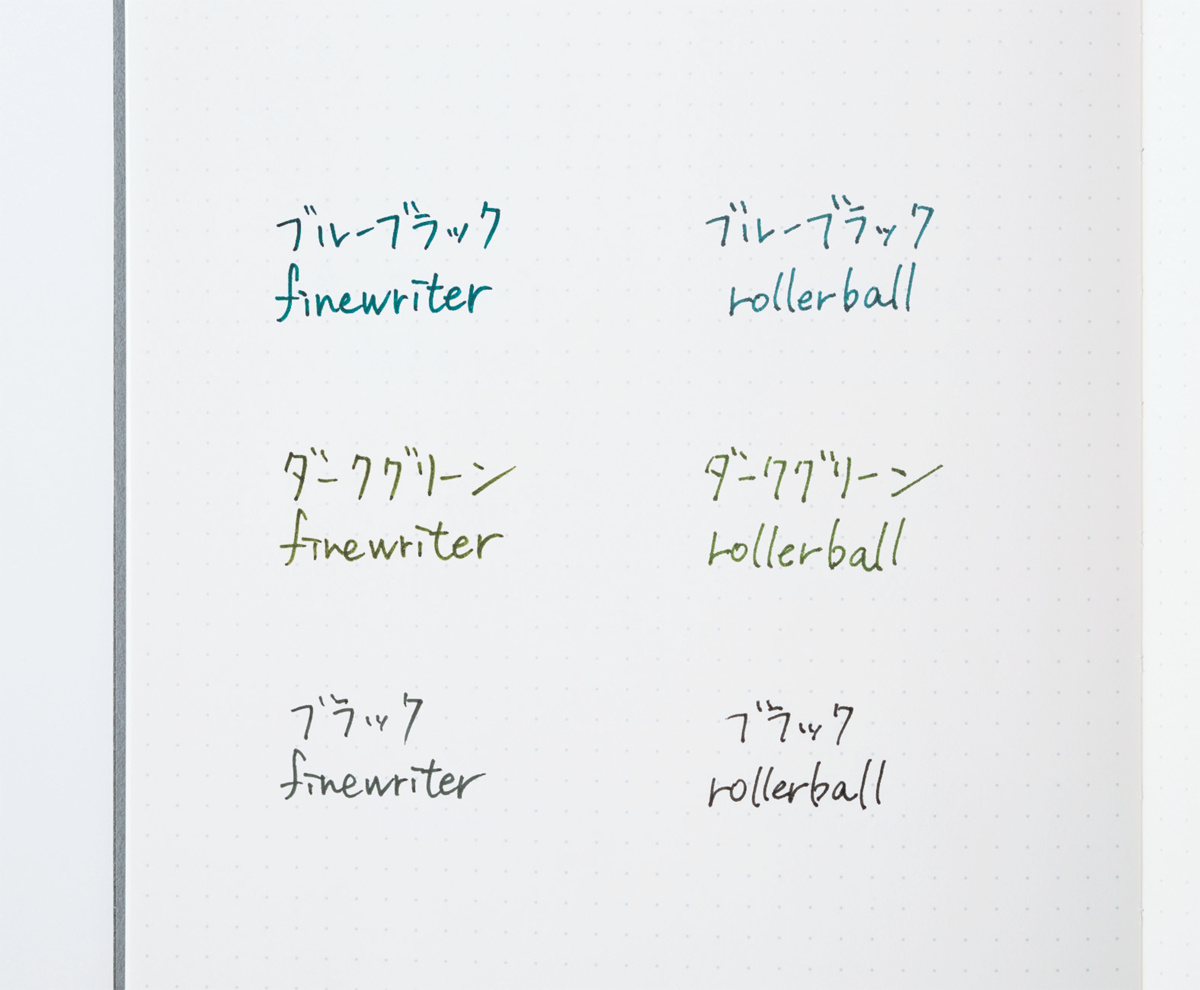 ブルーブラック
finewriter
ブルーブラック
rollerball
ダークグリーン
finewriter
ダークグリーン
rollerball
ブラック
finewriter
ブラック
rollerball